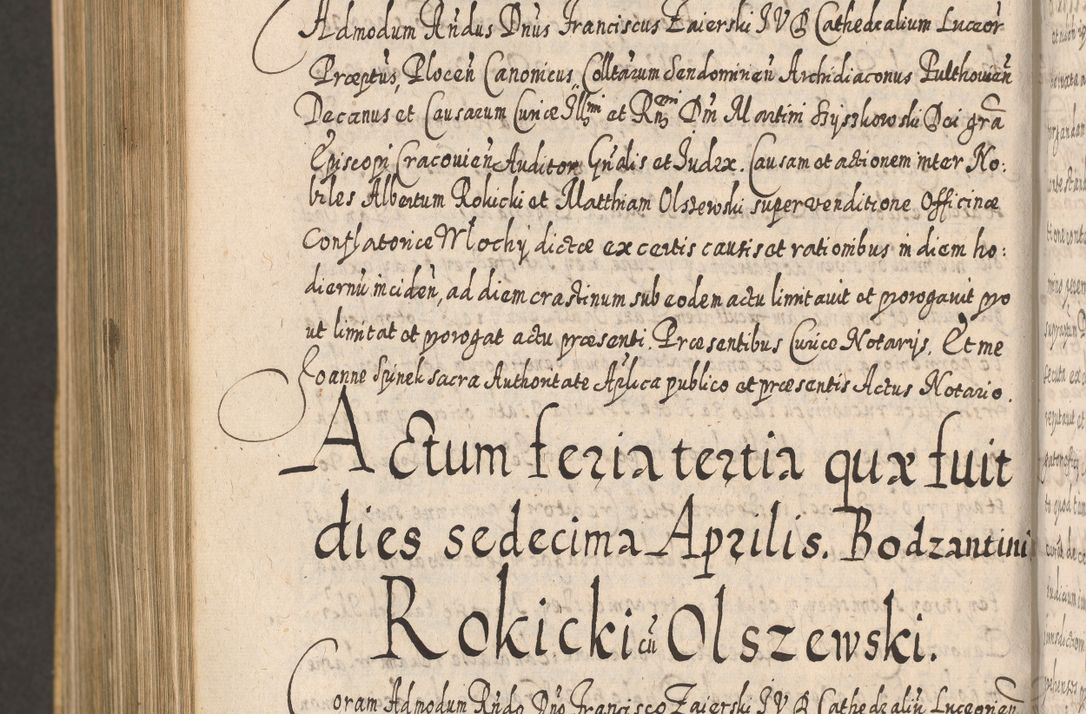 Admodum Rn̄dus Dn̄us Franciscus Zaierski IVD Cathedralium Luceor̄
Præptus, Plocen̄ Canonicus, Colltarum Sendomirien̄ Archidiaconus Pulthovien̄
Decanus et Causarum Curiæ Illmi et Rmi Dn̄i Martini Szyszkowski Dei grā
Episcopi Cracovien̄ Auditor Gn̄alis et Iudex. Causam et actionem inter No:
biles Albertum Rokicki et Matthiam Olszewski super venditione Officinæ
Conflatoriæ Mlochy dictæ ex certis causis et rationibus in diem ho:
diernū inciden̄, ad diem crastinum sub eodem actu limitavit et prorogavit pro
ut limitat et prorogat actu præsenti. Præsentibus Curiæ Notarijs. Et me
Joanne Spinek sacra Authoritate Aplica publico et præsentis Actus Notario.
Actum feria tertia quæ fuit
dies sedecima Aprilis. Bodzantini
Rokicki cū Olszewski.
Coram Admodum Rn̄do Dn̄o Francisco Zaierski IVD Cathedraliū Luceorien̄